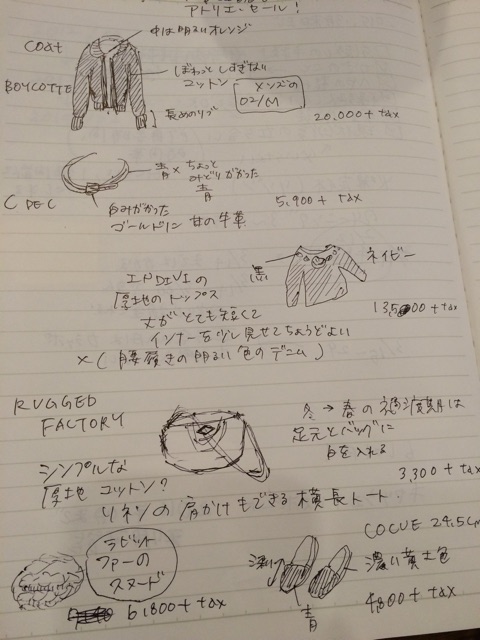 アトリエ・セール!
中は明るいオレンジ
coat
BOYCOTTE
ぼわっとしすぎない
コットン
メンズの
02/M
長めのリブ
20,000+tax
青×ちょっと
みどりがかった
青
C DEC
白みがかった
ゴールドリン
甘の牛革
5,900+tax
INDIVIの
厚地のトップス
丈がとても短くて
インナーを少し見せてちょうどよい
×(腰履きの明るい色のデニム)
黒
ネイビー
13,500+tax
RUGGED
FACTORY
シンプルな
厚地コットン?
リネンの肩かけもできる横長トート.
冬→春の過渡期は
足元とバッグに
白を入れる
3,300+tax
ラビット
ファーの
スヌード
6,800+tax
COCUE 24.5cm
深い
濃い黄土色
青
4,800+tax